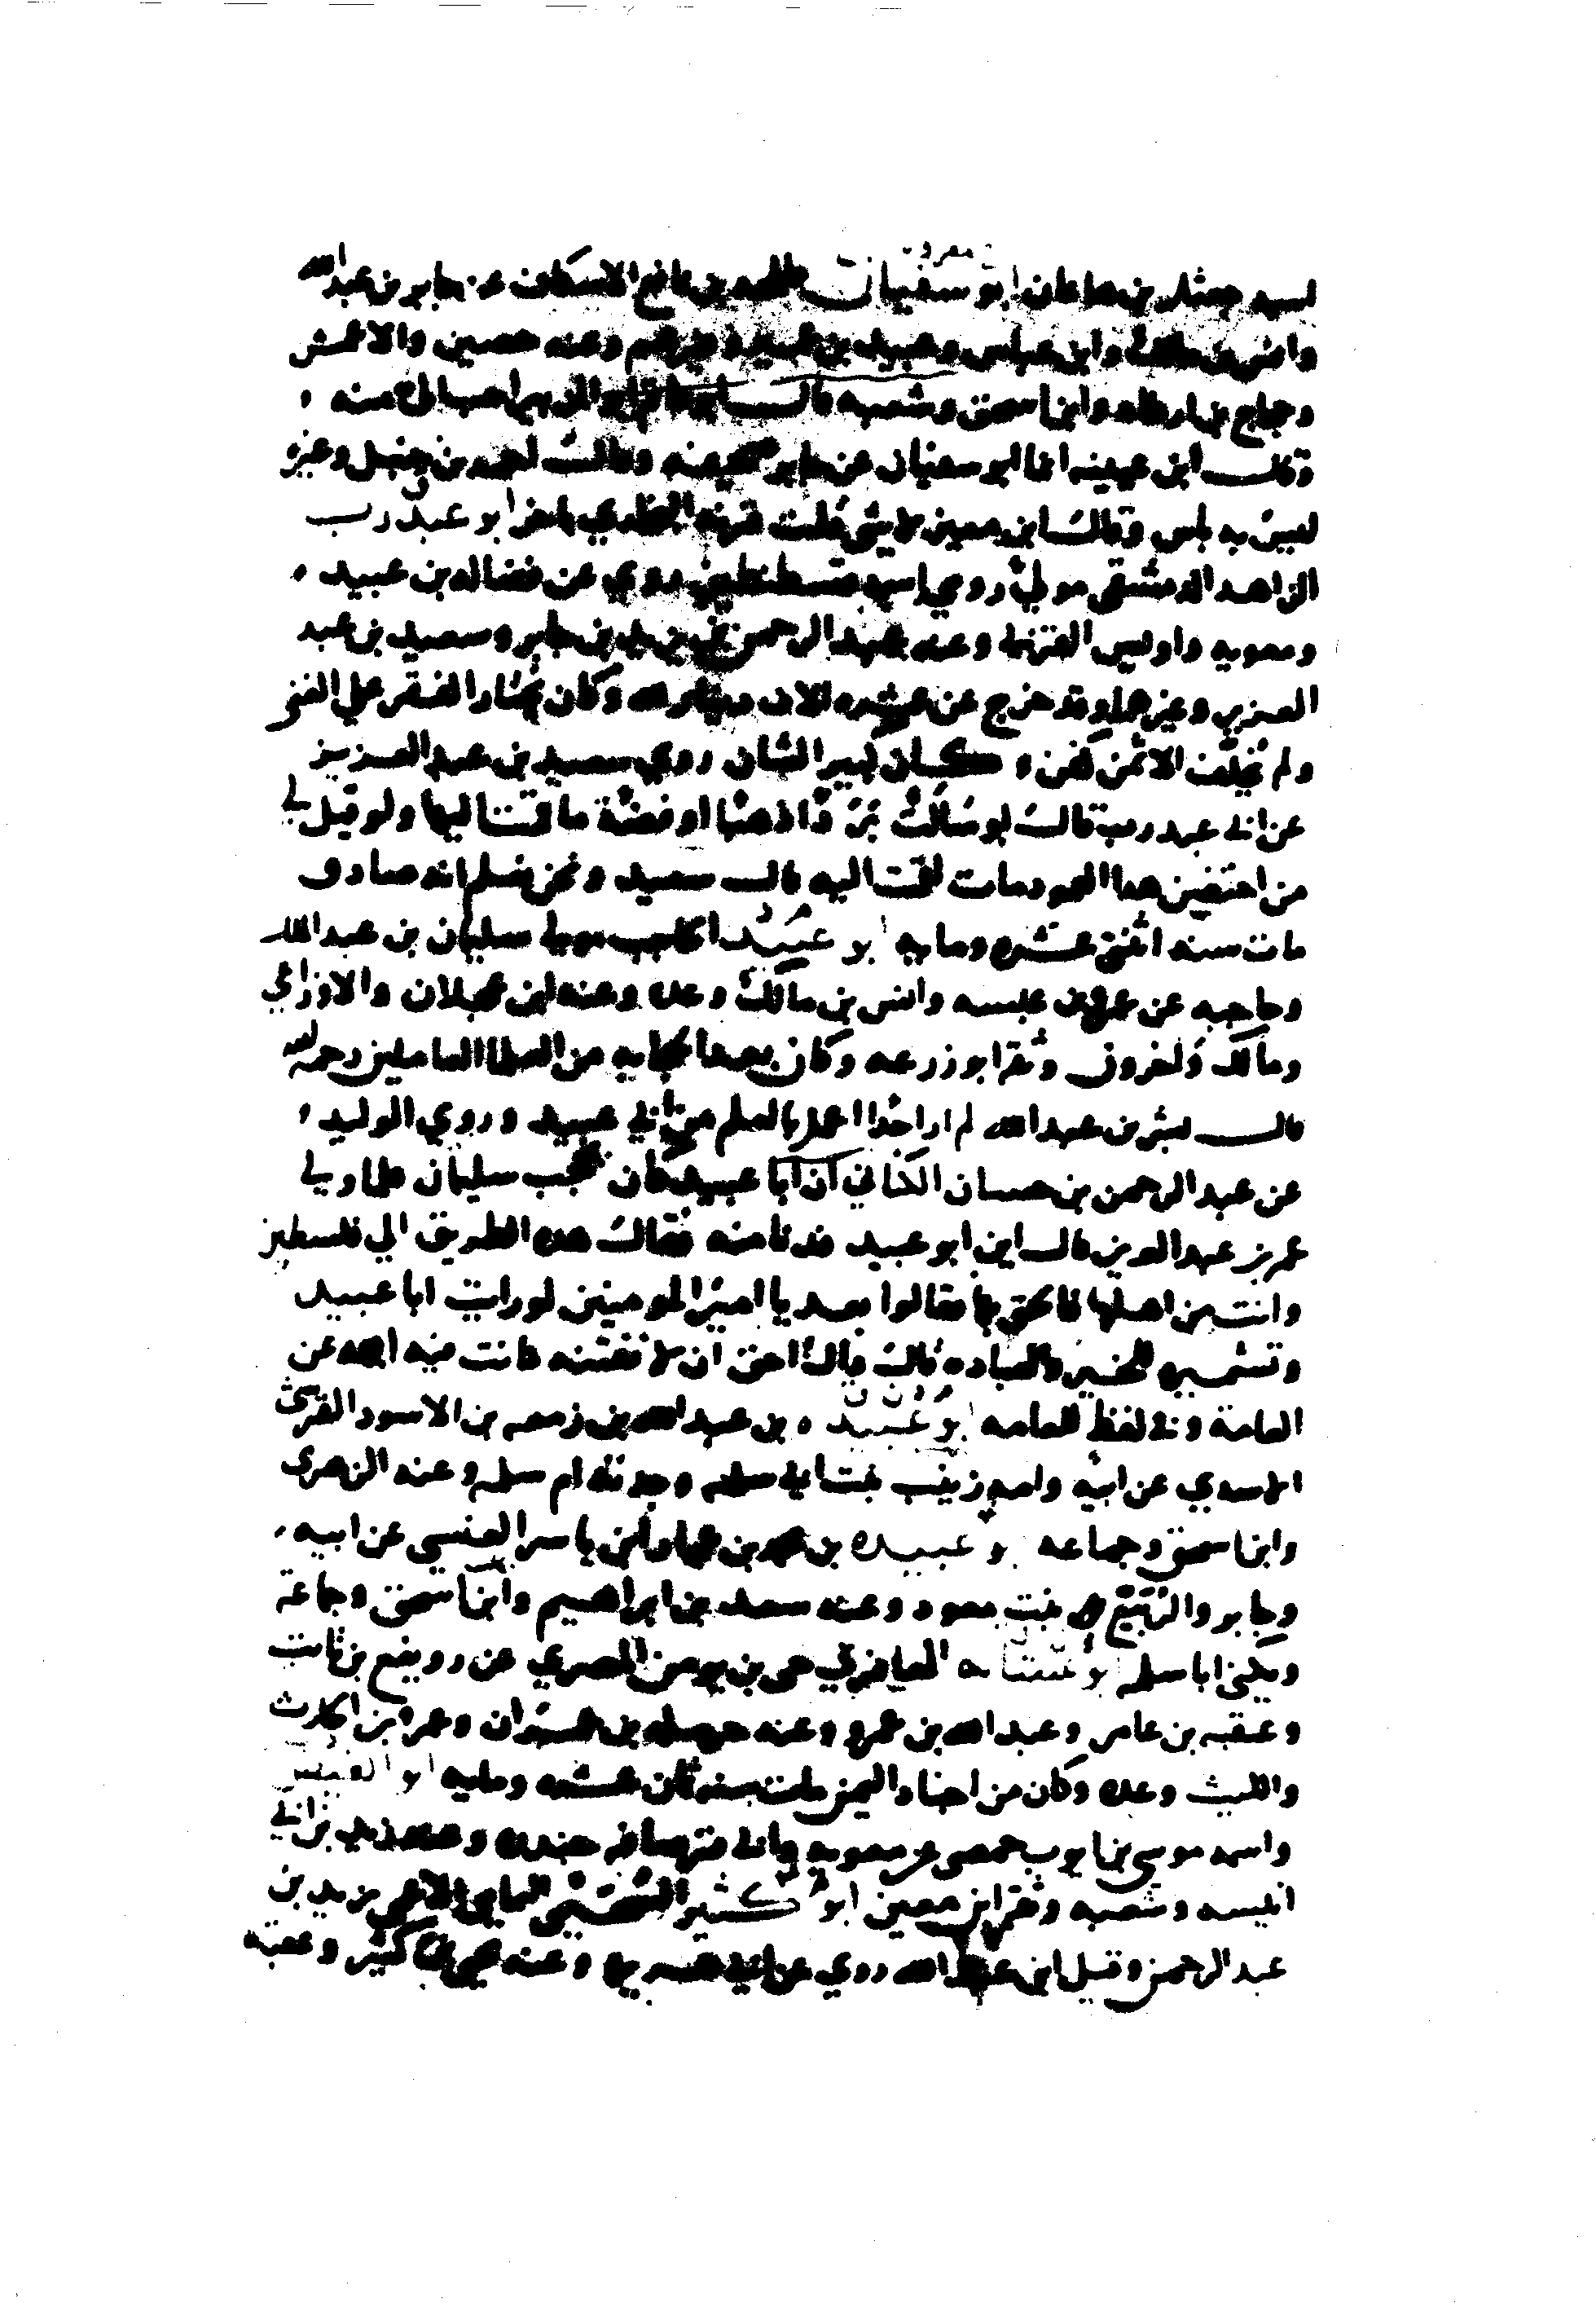 اسمه جعثل بن هاعان ابو سفيان طلحه بن نافع الاسكاف عن جابر بن عبد الله
وانس بن مالك وابن عباس وعبيد بن عمير وغيرهم وعنه حصين والاعمش
وحجاج بن ارطاه وابن اسحق وشعبه قال ابو حاتم ابو الزبير احب الي منه
وقال ابن عيينه انما ابو سفيان عن جابر صحيفه وقال احمد بن حنبل وغيره
ليس به باس وقال ابن معين لا شي قلت قرنه البخاري باخر ابو عبد رب
الزاهد الدمشقي مولي رومي اسمه قسطنطين روي عن فضاله بن عبيد
ومعويه واويس القرني وعنه عبد الرحمن بن يزيد بن جابر وسعيد بن عبد
العزيز وغيرهما وقد خرج عن عشره الاف دينار لله وكان يختار الفقر علي الغني
ولم يخلف الا ثمن كفن وكان كبير الشان روي سعيد بن عبد العزيز
عن ابي عبد رب قال لو سالت بردا ذهبا او فضة ما قمت اليها ولو قيل لي
من احتضن هدا العمود مات لقمت اليه قال سعيد ونحن نعلم انه صادق
مات سنه اثنتي عشره ومايه ابو عبيد الحاجب مولي سليمان بن عبد الملك
وحاجبه عن عمرو بن عبسه وانس بن مالك وعده وعنه ابن عجلان والاوزاعي
ومالك واخرون وثقه ابو زرعه وكان بعد الحجابه من العلما العاملين رحمه الله
قال بشر بن عبد الله لم ار احدا اعمل بالعلم من ابي عبيد وروي الوليد
عن عبد الرحمن بن حسان الكناني ان ابا عبيد كان يحجب سليمان فلما ولي
عمر بن عبد العزيز قال اين ابو عبيد فدنا منه فقال هده الطريق الي فلسطين
وانت من اهلها فالحق بها فقالوا بعد يا امير المومنين لو رايت ابا عبيد
وتشميره للخير والعباده قال ذاك احق ان لا نفتنه كانت فيه ابهه عن
العامة وفي لفظ للعامه ابو عبيده بن عبد الله بن زمعه بن الاسود القرشي
الاسدي عن ابيه وامه زينب بنت ابي سلمه وجدته ام سلمه وعنه الزهري
وابن اسحق وجماعه ابو عبيده بن محمد بن عمار بن ياسر العنسي عن ابيه
وجابر والربيع بنت معود وعنه سعد بن ابراهيم وابن اسحق وجماعة
ويكني ابا سلمه ابو عشانه المعافري حي بن يومن المصري عن رويفع بن ثابت
وعقبه بن عامر وعبد الله بن عمرو وعنه حرمله بن عمران وعمرو بن الحارث
والليث وعده وكان من اجناد اليمن مات سنه ثمان عشره ومايه ابو الفيض
واسمه موسي بن ايوب حمصي عن معويه وابي قرصافه جندره وعنه زيد بن ابي
انيسه وشعبه وثقه ابن معين ابو كثير السحيمي اليمامي الاعمي يزيد بن
عبد الرحمن وقيل ابن عبد الله روي عن ابي هريره وعنه يحيي بن ابي كثير وعقبه